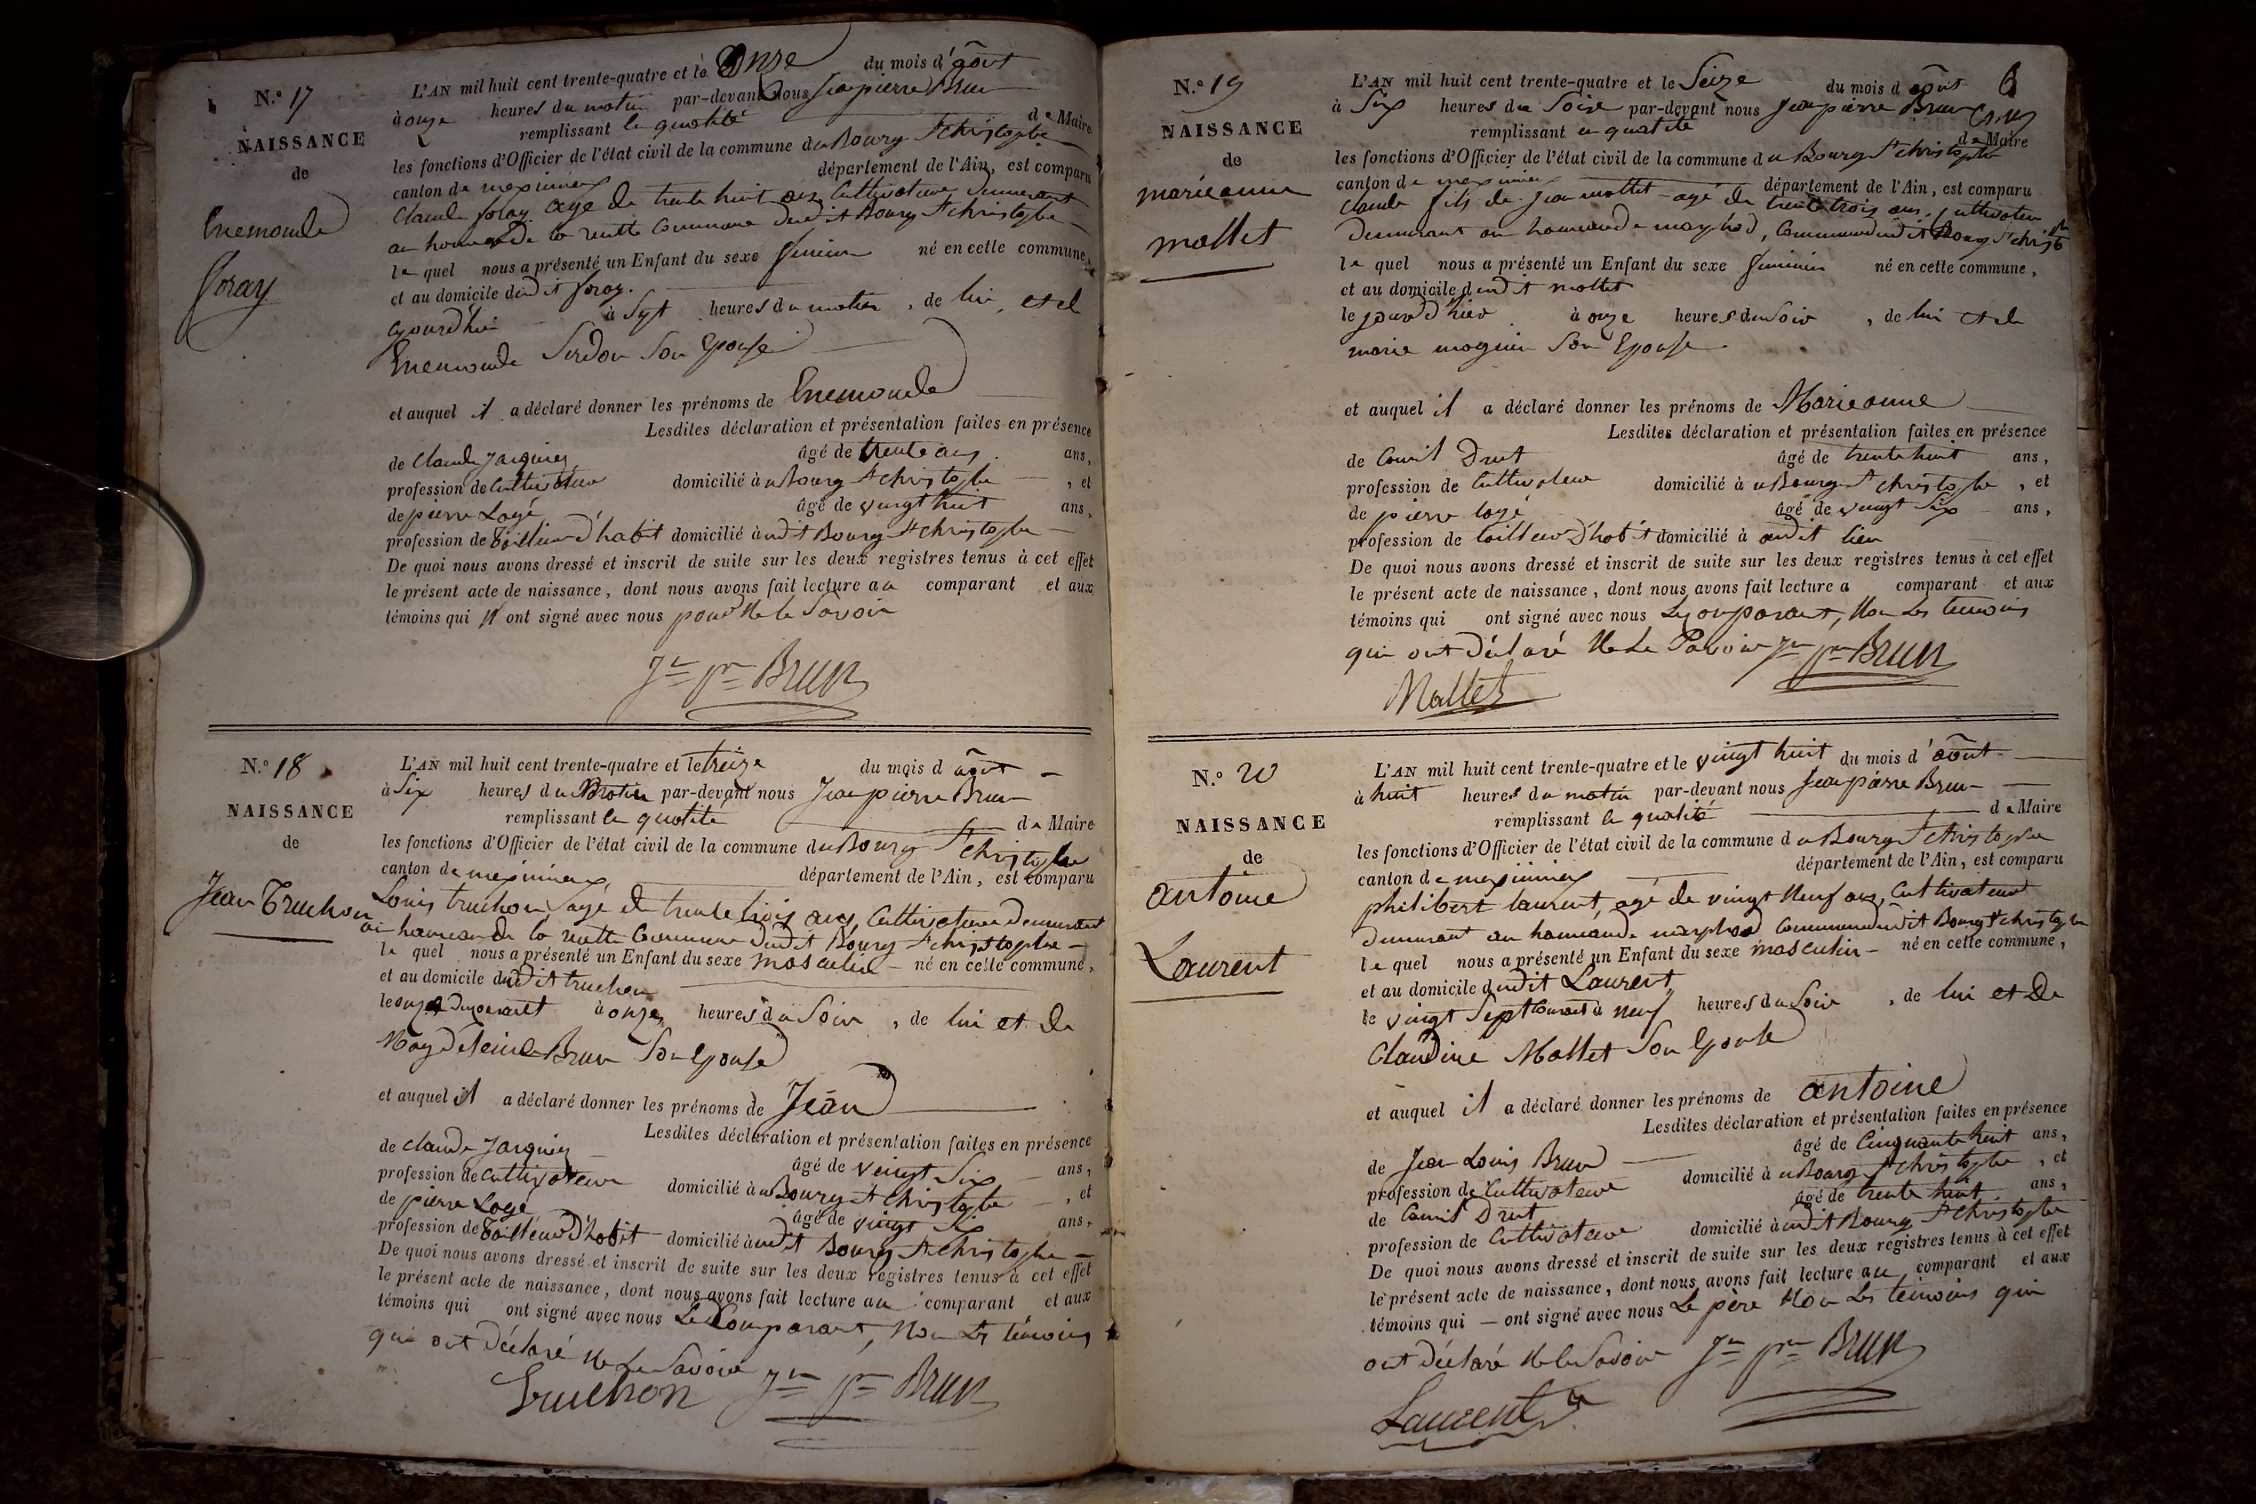 N.º 17
NAISSANCE
de
Enemonde
foray
L'AN mil huit cent trente-quatre et le Onze du mois d'août
à onze heures du matin par-devant nous Jean pierre Brun
remplissant la qualité de Maire
les fonctions d'Officier de l'état civil de la commune du Bourg St christophe
canton de meximieux département de l'Ain, est comparu
Claude foray agé de trente huit ans Cultivateur demeurant
au hameau de la Commune dudit Bourg St christophe
le quel nous a présenté un Enfant du sexe feminin né en cette commune,
et au domicile dudit foray.
à Sept heures du matin, de lui, et de
Enemonde Son Epouse
et auquel il a déclaré donner les prénoms de Enemonde
Lesdites déclaration et présentation faites en présence
de Claude Jarquier âgé de trente ans. ans,
profession de Cultivateur domicilié à u Bourg St christophe, et
de pierre Logé âgé de vingt huit ans,
profession de Tailleur d'habit domicilié à udit Bourg St christophe
De quoi nous avons dressé et inscrit de suite sur les deux registres tenus à cet effet
le présent acte de naissance, dont nous avons fait lecture au comparant et aux
témoins qui n'ont signé avec nous pour ne le Savoir
Jn pre BRUN
N.º 18
NAISSANCE
de
Jean Truchon
L'AN mil huit cent trente-quatre et le treize du mois d'août
à Six heures du Matin par-devant nous Jean pierre Brun
remplissant la qualité de Maire
les fonctions d'Officier de l'état civil de la commune du Bourg St christophe
canton de meximieux département de l'Ain, est comparu
Louis truchon, agé de trente trois ans, Cultivateur Demeurant
au hameau de la Commune dudit Bourg St christophe
le quel nous a présenté un Enfant du sexe masculin né en cette commune,
et au domicile dudit truchon
le onze du courant à onze heures du Soir, de lui et de
Magdeleine Brun Son Epouse
et auquel il a déclaré donner les prénoms de Jean
Lesdites déclaration et présentation faites en présence
de claude Jarquier âgé de vingt Six ans,
profession de Cultivateur domicilié à u Bourg St christophe, et
de pierre Logé âgé de vingt Six ans,
profession de Tailleur d'habit domicilié à udit Bourg St christophe
De quoi nous avons dressé et inscrit de suite sur les deux registres tenus à cet effet
le présent acte de naissance, dont nous avons fait lecture au comparant et aux
témoins qui ont signé avec nous Le Comparant, Non Les témoins
qui ont Déclaré Ne Le Savoir
Truchon Jn pre BRUN
6
N.º 19
NAISSANCE
de
marieanne
mollet
L'AN mil huit cent trente-quatre et le Seize du mois d'août
à Six heures du Soir par-devant nous Jean pierre Brun
remplissant la qualité de Maire
les fonctions d'Officier de l'état civil de la commune du Bourg St christophe
canton de meximieux département de l'Ain, est comparu
claude fils de Jean mollet agé de trente trois ans, Cultivateur
Demeurant au hameau de Commune dudit Bourg St christophe
le quel nous a présenté un Enfant du sexe feminin né en cette commune,
et au domicile dudit mollet
le jour d'hier à onze heures du Soir, de lui et de
marie Son Epouse
et auquel il a déclaré donner les prénoms de Marieanne
Lesdites déclaration et présentation faites en présence
de Drut âgé de trente huit ans,
profession de Cultivateur domicilié à u Bourg St christophe, et
de pierre logé âgé de vingt Six ans,
profession de tailleur d'habit domicilié à audit lieu
De quoi nous avons dressé et inscrit de suite sur les deux registres tenus à cet effet
le présent acte de naissance, dont nous avons fait lecture a comparant et aux
témoins qui ont signé avec nous Le Comparant, Non Les temoins
qui ont Déclaré Ne Le Savoir Jn pre BRUN
Mollet
N.º 20
NAISSANCE
de
antoine
Laurent
L'AN mil huit cent trente-quatre et le vingt huit du mois d'août
à huit heures du matin par-devant nous Jean pierre Brun
remplissant la qualité de Maire
les fonctions d'Officier de l'état civil de la commune du Bourg St christophe
canton de meximieux département de l'Ain, est comparu
philibert laurent, agé de vingt Neuf ans, Cultivateur
Demeurant au hameau de Commune dudit Bourg St christophe
le quel nous a présenté un Enfant du sexe masculin né en cette commune,
et au domicile dudit Laurent
le vingt Sept Courant à neuf heures du Soir, de lui et De
Claudine Mollet Son Epouse
et auquel il a déclaré donner les prénoms de antoine
Lesdites déclaration et présentation faites en présence
de Jean Louis Brun âgé de Cinquante huit ans,
profession de Cultivateur domicilié à u Bourg St christophe, et
de Drut âgé de trente huit ans,
profession de Cultivateur domicilié à udit Bourg St christophe
De quoi nous avons dressé et inscrit de suite sur les deux registres tenus à cet effet
le présent acte de naissance, dont nous avons fait lecture au comparant et aux
témoins qui ont signé avec nous Le père Non Les témoins qui
ont Déclaré Ne le Savoir Jn pre BRUN
Laurent